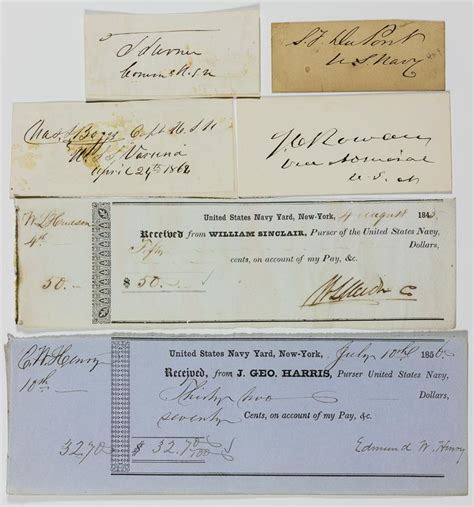 Comm U.S.N
S. F. DuPont
U S Navy
Chas S Boggs Capt U.S.N
U.S.S Varuna
April 24th 1862
S C Rowan
Vice Admiral
U. S. N
United States Navy Yard, New-York, 4 August 184
4th
Received from WILLIAM SINCLAIR, Purser of the United States Navy,
Fifty Dollars,
cents, on account of my Pay, &c.
50 $ 50
United States Navy Yard, New-York, July 10th 185
E. W. Henry
10th
Received, from J. GEO. HARRIS, Purser United States Navy,
Thirty two Dollars,
seventy Cents, on account of my Pay, &c.
32.70 $ 32.70/100
Edmund W. Henry